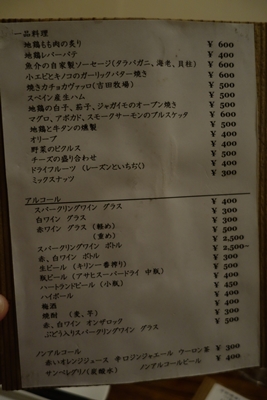 一品料理
地鶏もも肉の炙り ￥ 600
地鶏レバーパテ ￥ 400
魚介の自家製ソーセージ(タラバガニ、海老、貝柱) ￥ 600
小エビとキノコのガーリックバター焼き ￥ 600
焼きカチョカヴァッロ(吉田牧場) ￥ 500
スペイン産生ハム ￥ 500
地鶏の白子、茄子、ジャガイモのオーブン焼き ￥ 500
マグロ、アボカド、スモークサーモンのブルスケッタ ￥ 600
地鶏と牛タンの燻製 ￥ 400
オリーブ ￥ 400
野菜のピクルス ￥ 400
チーズの盛り合わせ ￥ 500
ドライフルーツ (レーズンといちぢく) ￥ 300
ミックスナッツ ￥ 300
アルコール
スパークリングワイン グラス ￥ 400
白ワイン グラス ￥ 300
赤ワイン グラス (軽め) ￥ 300
(重め) ￥ 500
スパークリングワイン ボトル ￥ 2,500
赤、白ワイン ボトル ￥ 2,500~
生ビール (キリン一番搾り) ￥ 300
瓶ビール (アサヒスーパードライ 中瓶) ￥ 400
ハートランドビール (小瓶) ￥ 450
ハイボール ￥ 400
梅酒 ￥ 400
焼酎 (麦、芋) ￥ 300
赤、白ワイン オンザロック ￥ 300
ぶどう入りスパークリングワイン グラス ￥ 500
ノンアルコール
赤いオレンジジュース 辛口ジンジャエール ウーロン茶 ￥ 300
サンペレグリノ(炭酸水) ノンアルコールビール ￥ 400